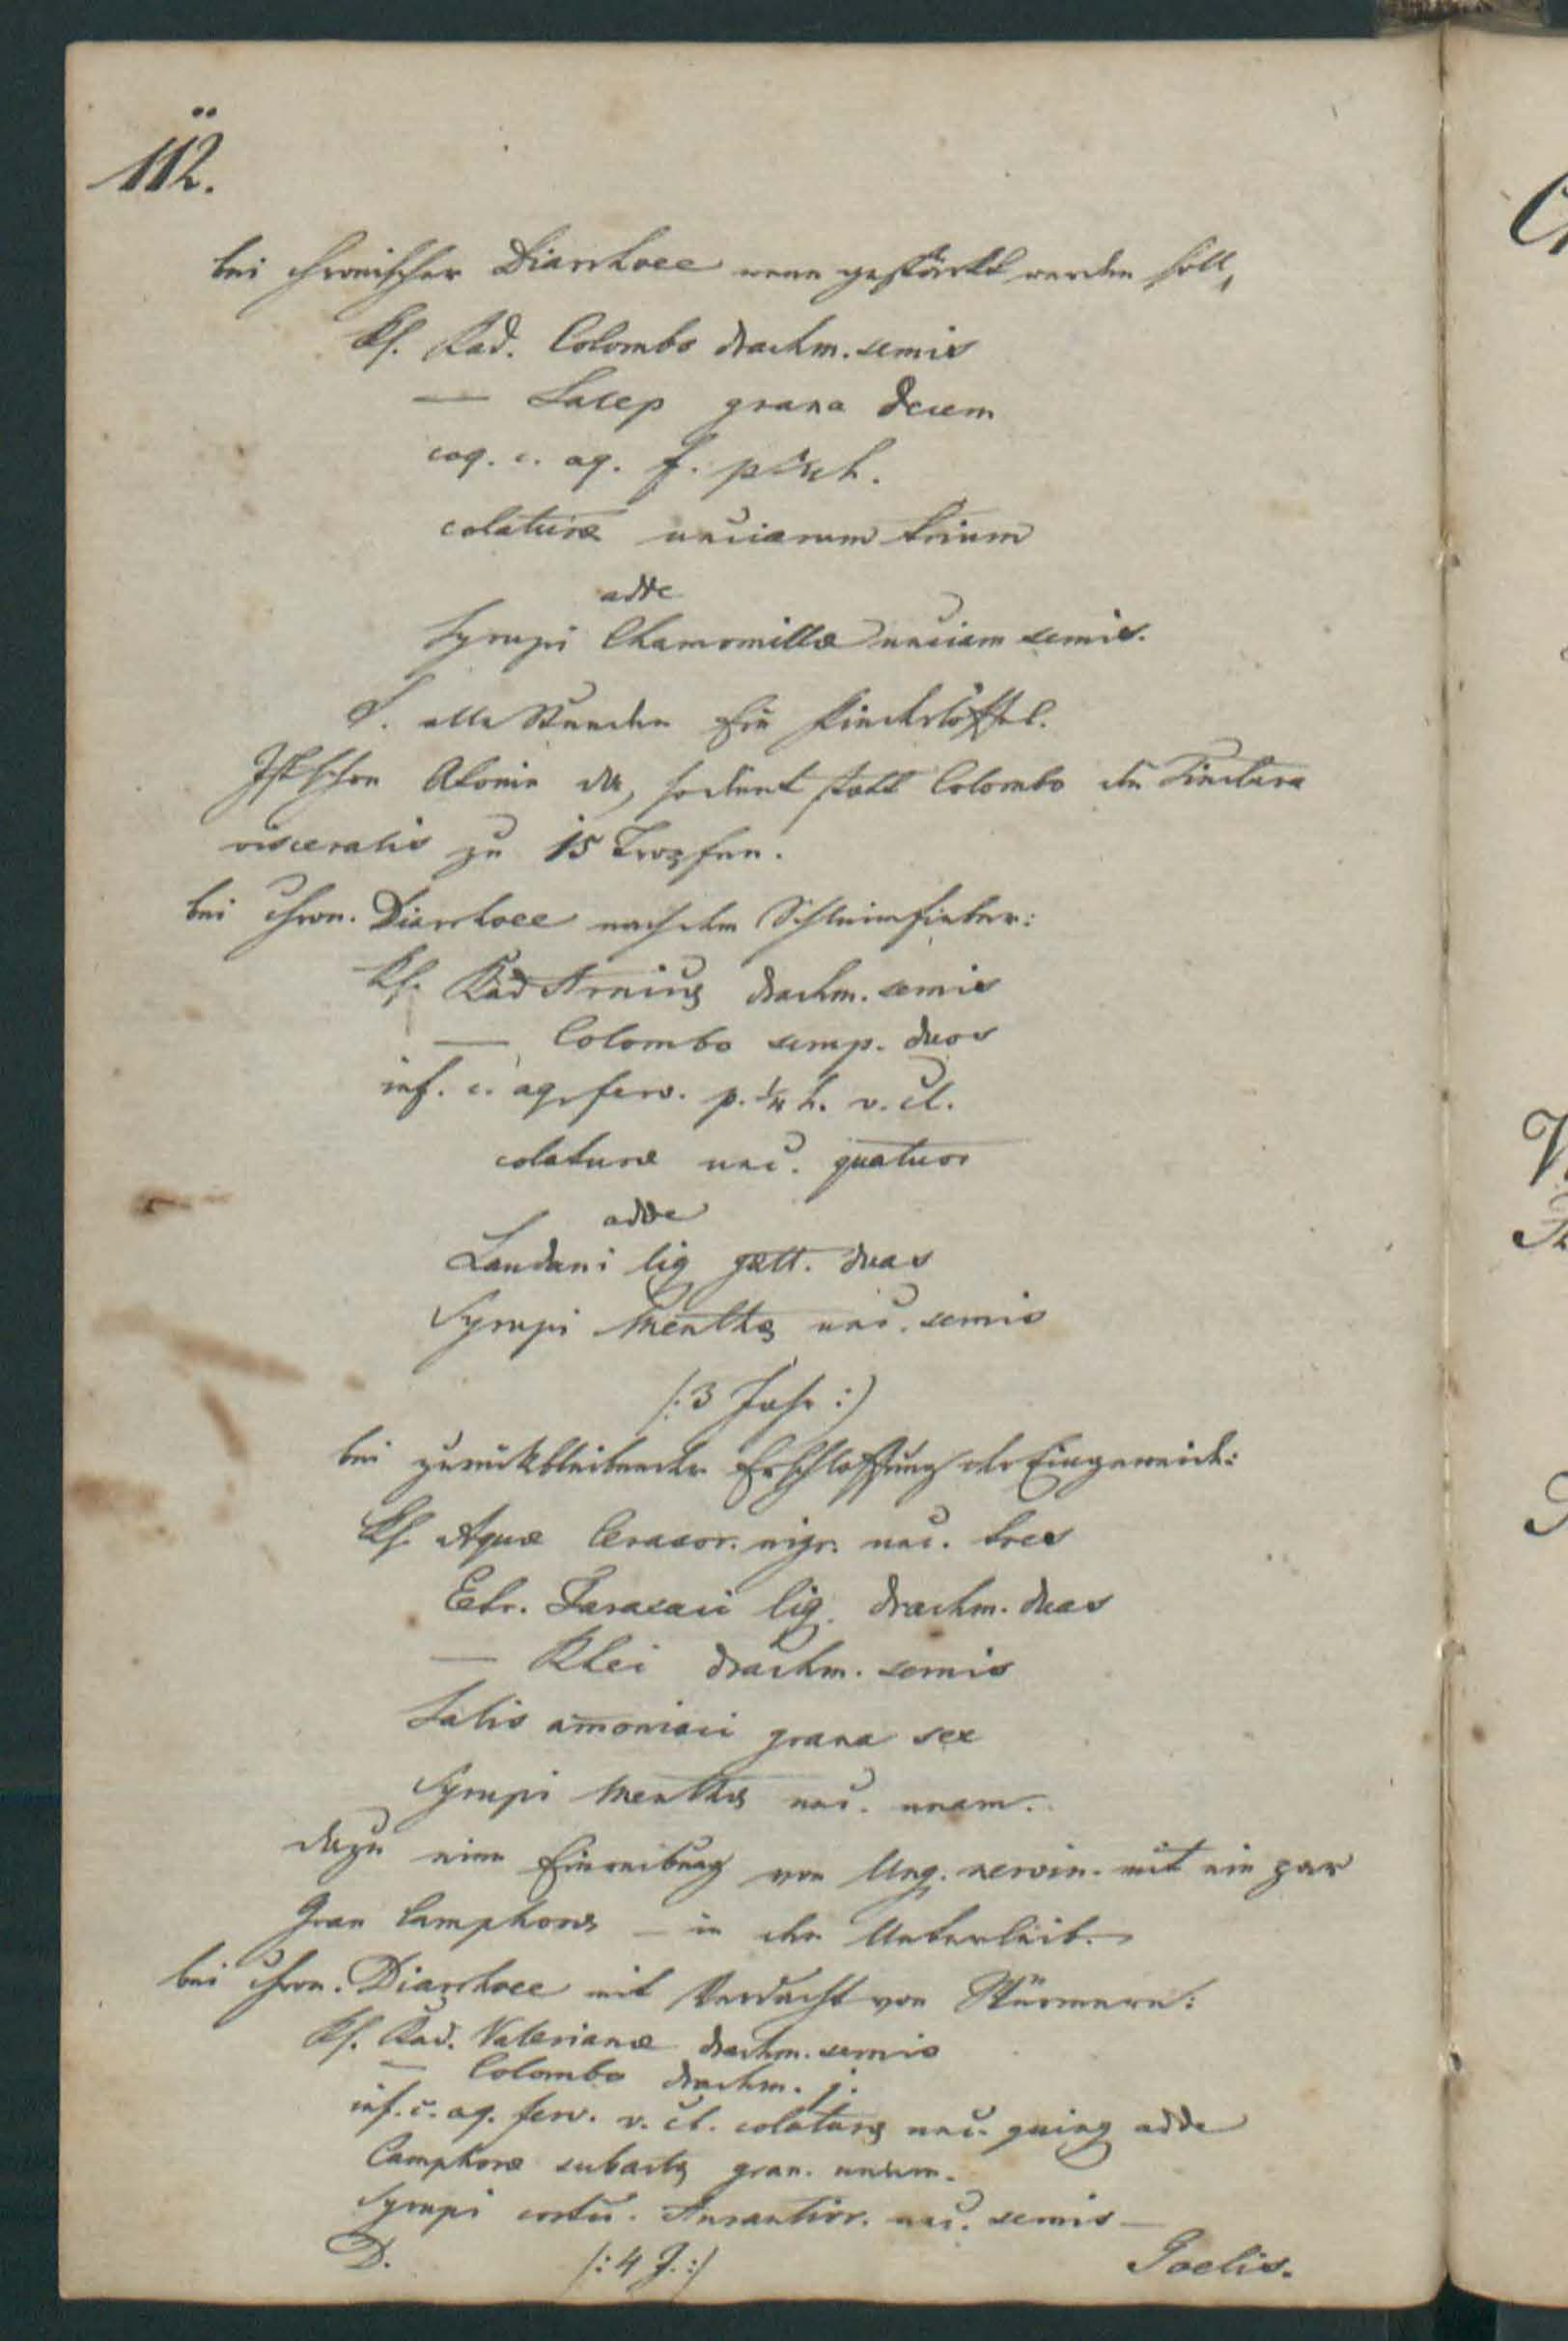 112.
bei chronischer Diarrhoee wenn gestärkt werden soll,
Rp. Rad. Colombo drachm. semis
— Salep grana decem
coq. c. aq. f. p ¼ h.
colaturæ unciarum trium
adde
Syrupi Chamomillæ unciam semis.
S. alle Stunden Ein Kinderlöffel.
Ist schon Atonie da, so dient statt Colombo die Tinctura
visceralis zu 15 Tropfen.
bei chron. Diarrhoee nach dem Schleimfieber:
Rp. Rad Arnicæ drachm. semis
— Colombo scrup. duos
inf. c. aq. ferv. p. ¼ h. v. cl.
colaturæ unc. quatuor
adde
Laudani liq gutt. duas
Syrupi Menthæ unc. semis
/: 3 Jahr :/
bei zurückbleibender Erschlaffung der Eingeweide:
Rp. Aquæ Cerasor. nigr. unc. tres
Extr. Taraxaci liq. drachm. duas
— Rhei drachm. semis
Salis amoniaci grana sex
Syrupi Menthæ unc. unam.
dazu eine Einreibung von Ung. nervin. mit ein par
Gran Camphoræ — in den Unterleib.
bei chron. Diarrhoee mit Verdacht von Würmern:
Rp. Rad. Valerianæ drachm. semis
— Colombo drachm. j.
inf. c. aq. ferv. v. cl. colaturæ unc. quinq adde
Camphoræ subactæ gran. unum.
Syrupi cortic. Aurantior. unc. semis —
D. /: 4 J. :/ Goelis.